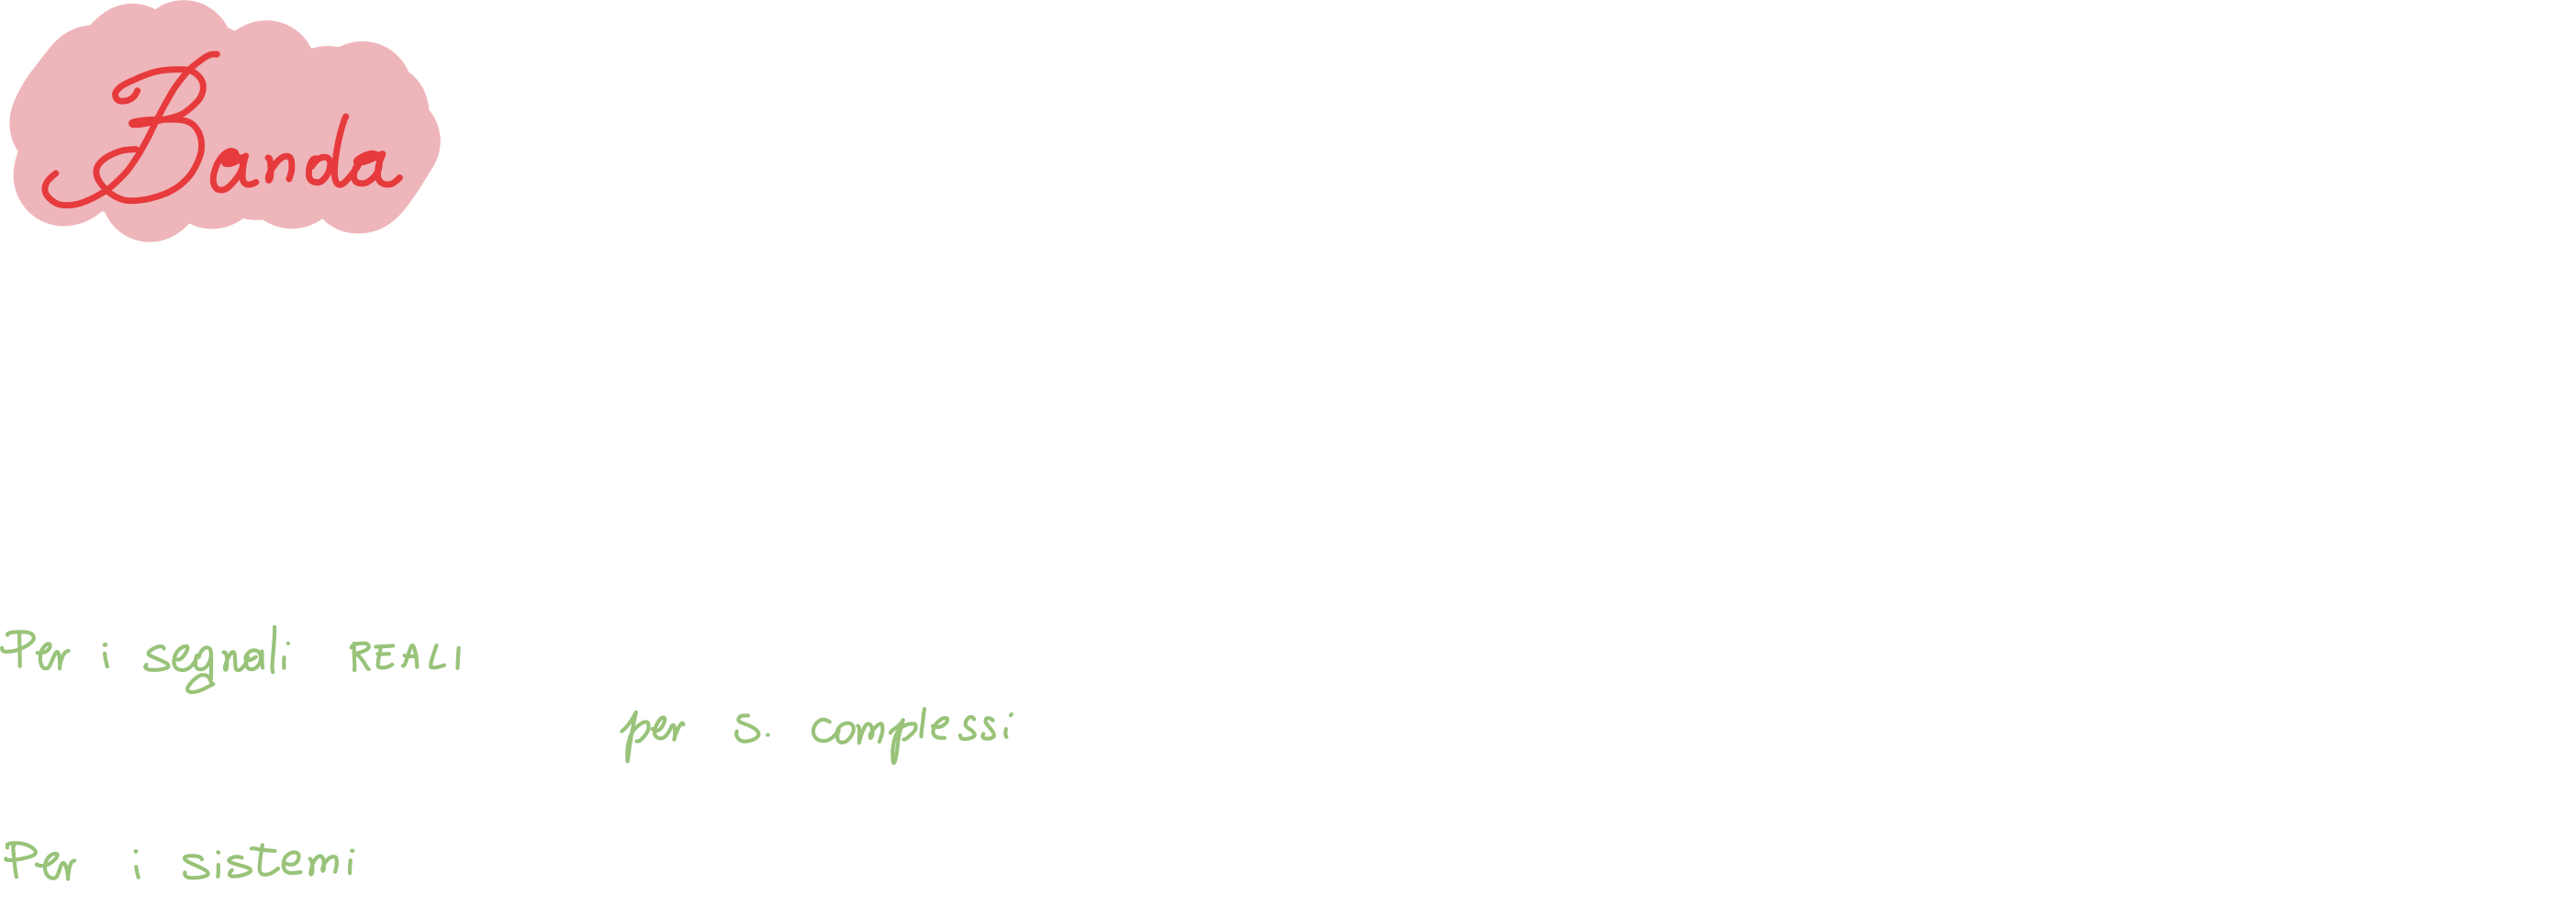 Banda
Per i segnali REALI
per s. complessi
Per i sistemi